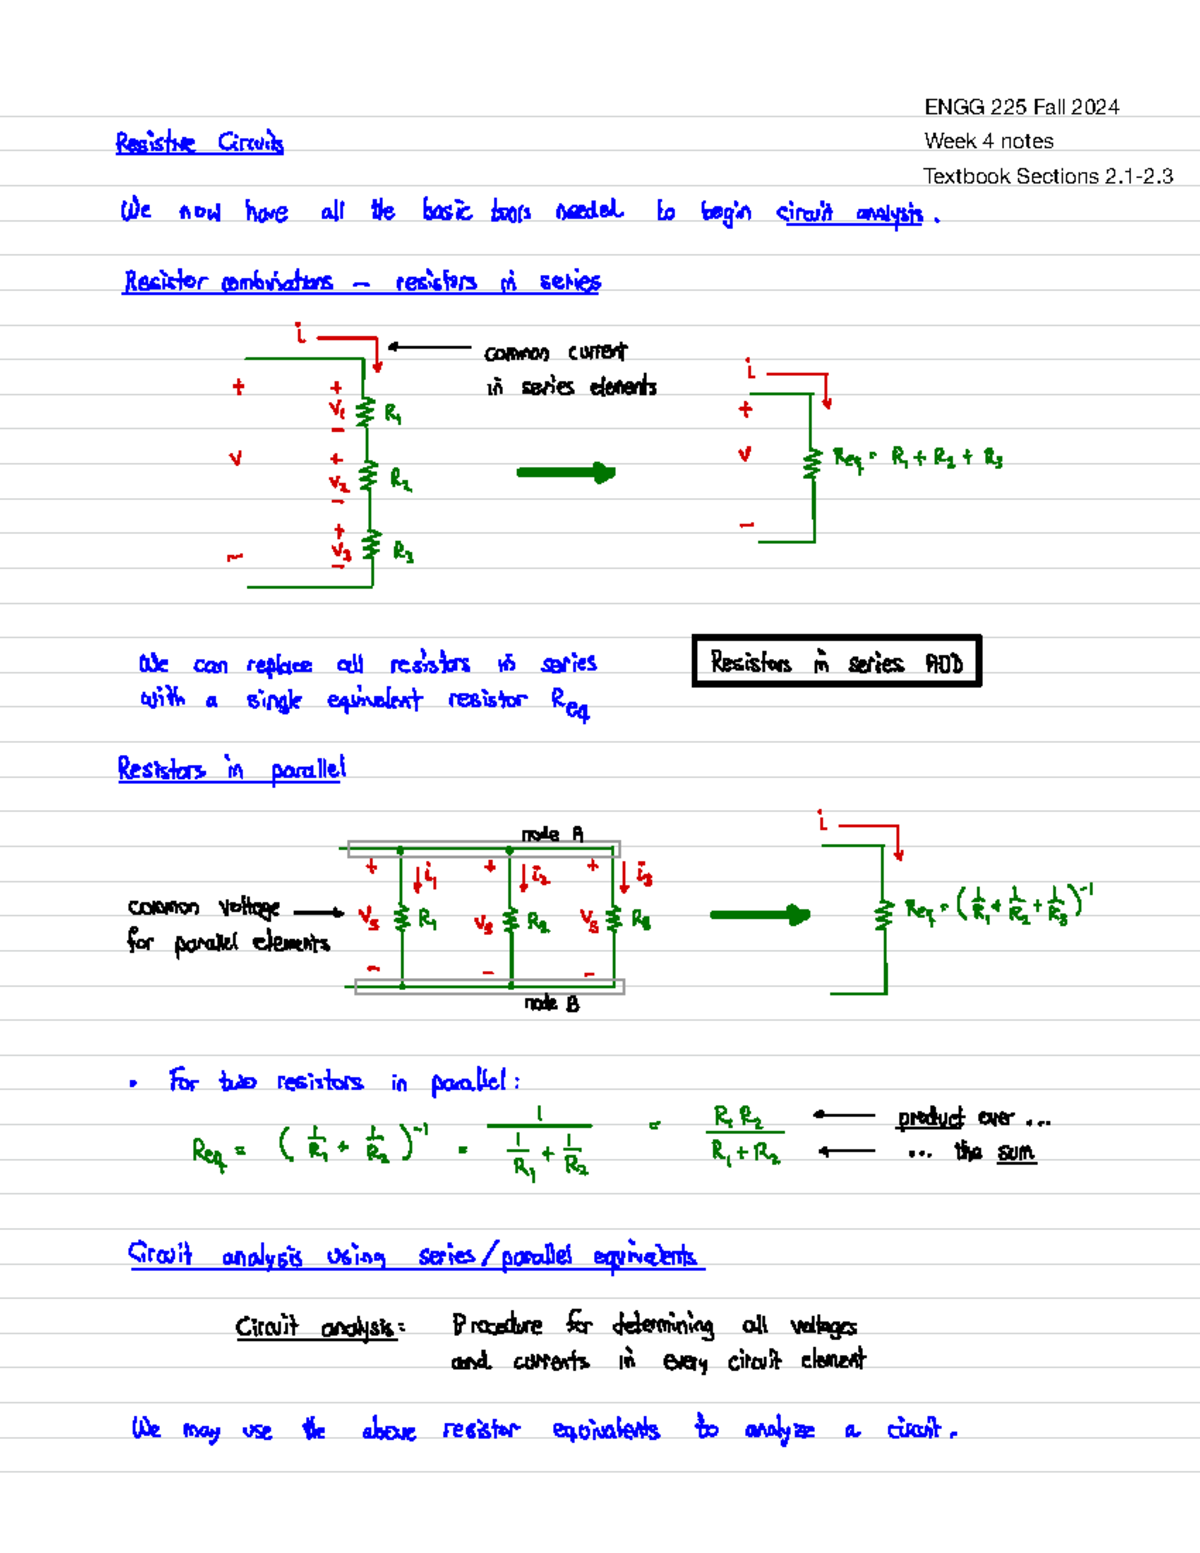 ENGG 225 Fall 2024
Week 4 notes
Textbook Sections 2.1-2.3
Resistive Circuits
We now have all the basic tools needed to begin circuit analysis.
Resistor combinations – resistors in series
i
common current
in series elements
+ + V₁ – R₁
V + V₂ – R₂
– + V₃ – R₃
i
+ V –
Req = R₁ + R₂ + R₃
We can replace all resistors in series
with a single equivalent resistor Req
Resistors in series ADD
Resistors in parallel
node A
+ i₁ + i₂ + i₃
common voltage
for parallel elements
Vs R₁ Vs R₂ Vs R₃
– – –
node B
i
Req = (1/R₁ + 1/R₂ + 1/R₃)⁻¹
• For two resistors in parallel:
Req = (1/R₁ + 1/R₂)⁻¹ = 1/(1/R₁ + 1/R₂) = R₁R₂/(R₁ + R₂)
product over ...
... the sum
Circuit analysis using series/parallel equivalents
Circuit analysis: Procedure for determining all voltages
and currents in every circuit element
We may use the above resistor equivalents to analyze a circuit.